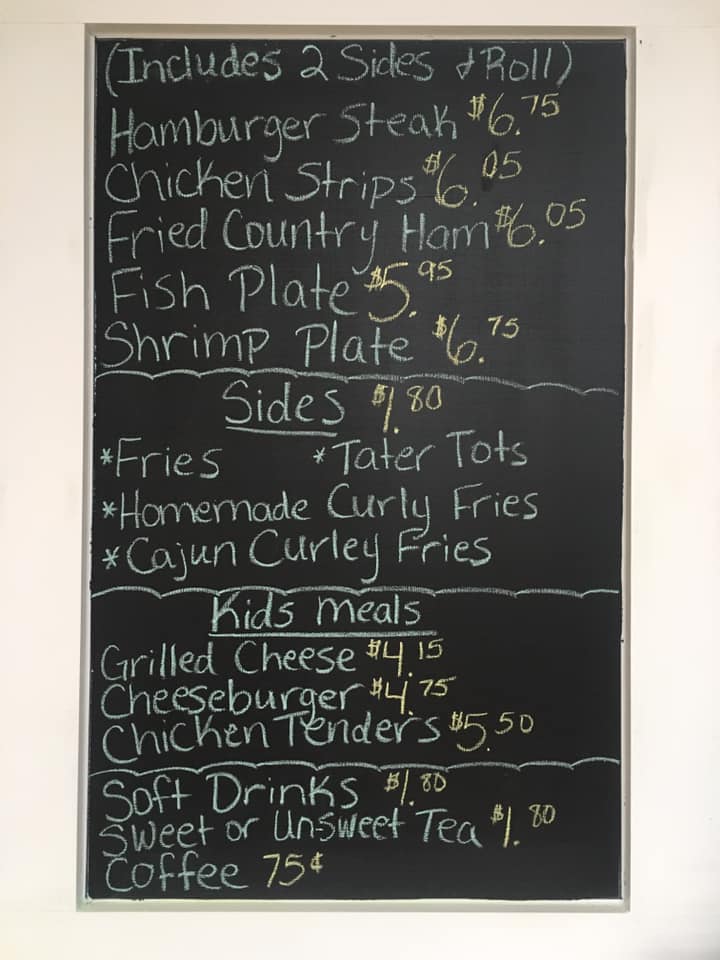 (Includes 2 Sides & Roll)
Hamburger Steak $6.75
Chicken Strips $6.05
Fried Country Ham $6.05
Fish Plate $5.95
Shrimp Plate $6.75
Sides $1.80
*Fries *Tater Tots
*Homemade Curly Fries
*Cajun Curley Fries
Kids meals
Grilled Cheese $4.15
Cheeseburger $4.75
Chicken Tenders $5.50
Soft Drinks $1.80
Sweet or Unsweet Tea $1.80
Coffee 75¢